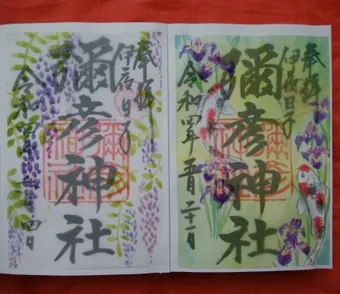 奉拝
伊夜日子
彌彦神社
令和四年
四日
奉拝
伊夜日子
彌彦神社
令和四年五月二十一日